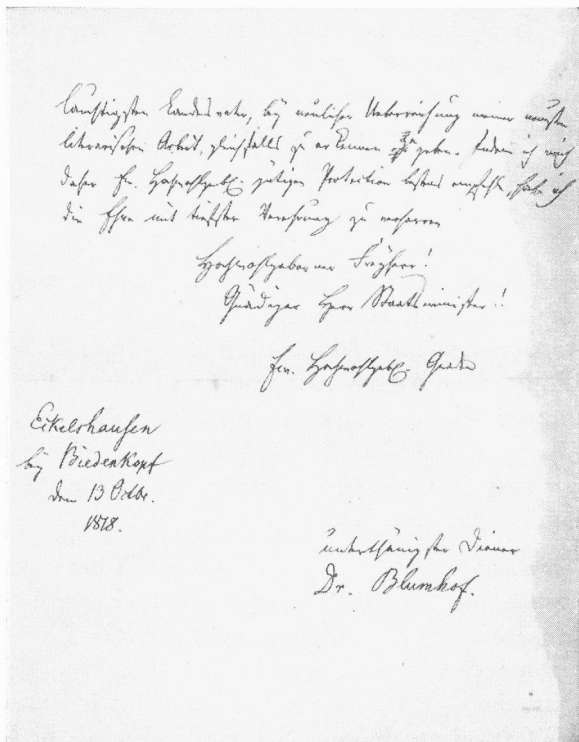 Landesvater, bey neulicher Ueberreichung meiner neusten
literarischen Arbeit, gleichfalls zu erkennen zu geben. Indem ich mich
daher Ew. Hochwohlgeb. gütigen Protection bestens empfehle, habe ich
die Ehre mit tiefster Verehrung zu verharren
Hochwohlgeborner Freyherr!
Gnädiger Herr Staatsminister!
Ew. Hochwohlgeb. Gnaden
Eckelshausen
bey Biedenkopf
den 13 Octbr.
1818.
unterthänigster Diener
Dr. Blumhof.